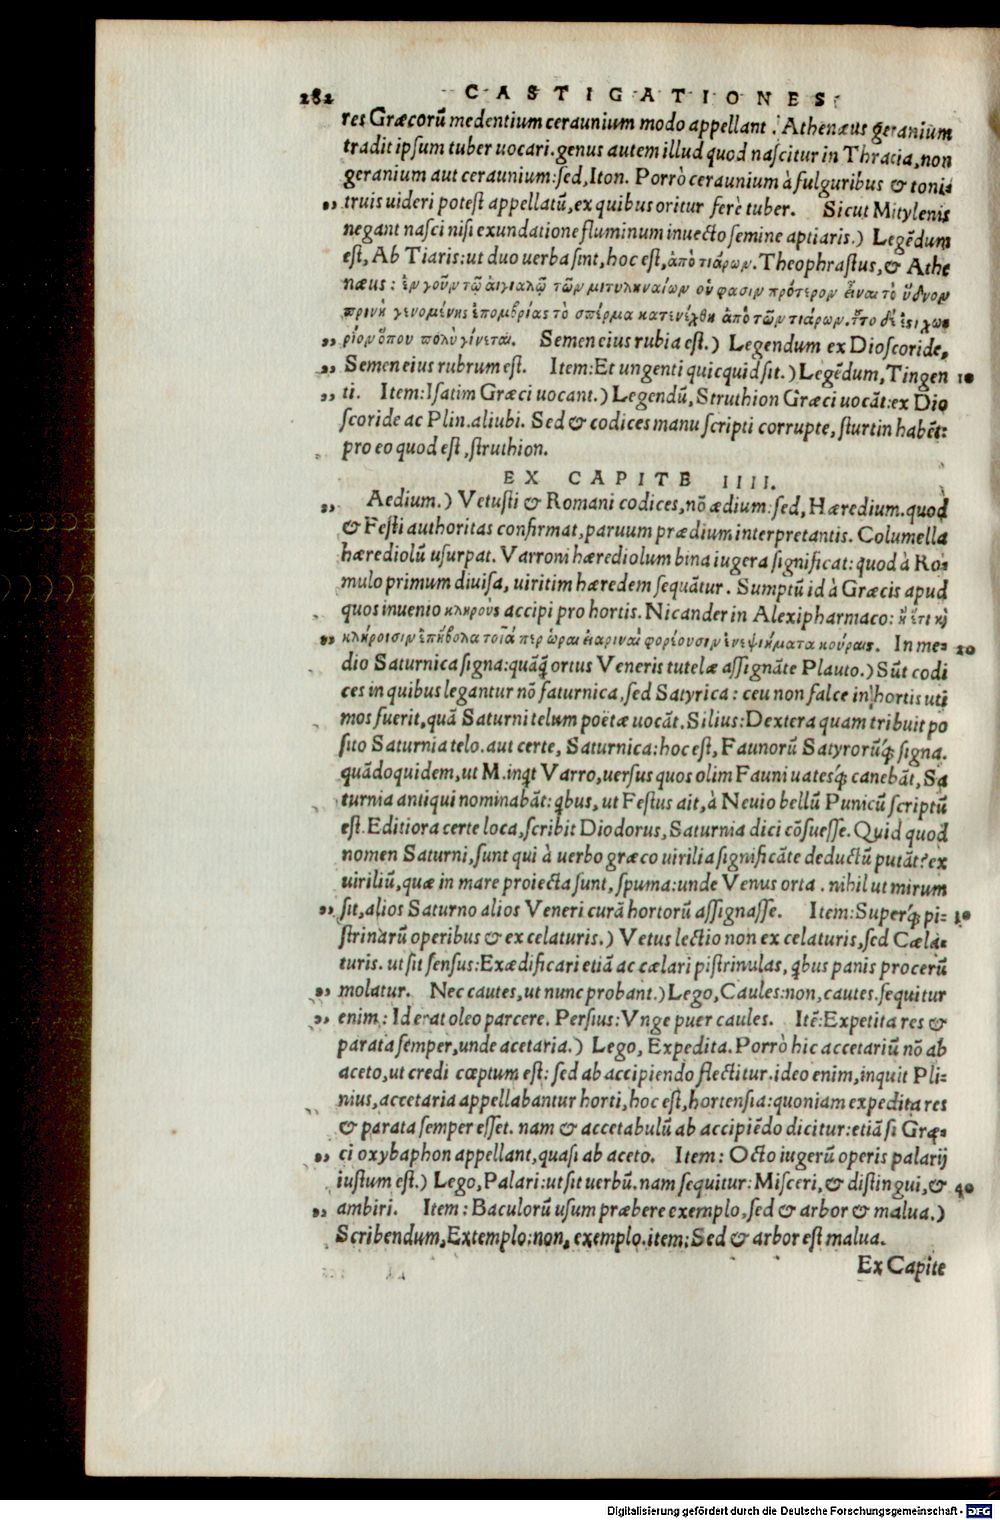 282 CASTIGATIONES
res Græcorũ medentium ceraunium modo appellant. Athenæus geranium
tradit ipsum tuber uocari. genus autem illud quod nascitur in Thracia, non
geranium aut ceraunium: sed, Iton. Porrò ceraunium à fulguribus & toni-
„ truis uideri potest appellatũ, ex quibus oritur ferè tuber. Sicut Mitylenis
negant nasci nisi exundatione fluminum inuecto semine aptiaris.) Legẽdum
est, Ab Tiaris: ut duo uerba sint, hoc est, ἀπὸ τιάρων. Theophrastus, & Athe
næus: ἐν γοῦν τῷ αἰγιαλῷ τῶν μιτυληναίων οὔ φασιν πρότερον εἶναι τὸ ὕδνον
πρὶν ἢ γενομένης ἐπομβρίας τὸ σπέρμα κατενέχθη ἀπὸ τῶν τιάρων. τοῦτο δ' ἐςὶ χω
„ ρίον ὅπου πολὺ γίνεται. Semen eius rubia est.) Legendum ex Dioscoride,
„ Semen eius rubrum est. Item: Et ungenti quicquid sit.) Legẽdum, Tingen 10
„ ti. Item: Isatim Græci uocant.) Legendũ, Struthion Græci uocãt: ex Dio
scoride ac Plin. aliubi. Sed & codices manu scripti corrupte, sturtin habẽt:
pro eo quod est, struthion.
EX CAPITE IIII.
„ Aedium.) Vetusti & Romani codices, nõ ædium: sed, Hæredium. quod
& Festi authoritas confirmat, paruum prædium interpretantis. Columella
hærediolũ usurpat. Varroni hærediolum bina iugera significat: quod à Ro-
mulo primum diuisa, uiritim hæredem sequãtur. Sumptũ id à Græcis apud
quos inuenio κλήρους accipi pro hortis. Nicander in Alexipharmaco: ἢ ἔτι καὶ
„ κλήροισιν ἐπήβολα τοῖά περ ὧραι εἰαριναὶ φορέουσιν ἐνεψιήματα κούραις. In me- 20
dio Saturnica signa: quãq̃ ortus Veneris tutelæ assignãte Plauto.) Sũt codi
ces in quibus legantur nõ saturnica, sed Satyrica: ceu non falce in hortis uti
mos fuerit, quã Saturni telum poëtæ uocãt. Silius: Dextera quam tribuit po
sito Saturnia telo. aut certe, Saturnica: hoc est, Faunorũ Satyrorũq́; signa.
quãdoquidem, ut M. inq̃t Varro, uersus quos olim Fauni uatesq́; canebãt, Sa
turnia antiqui nominabãt: q̃bus, ut Festus ait, à Neuio bellũ Punicũ scriptũ
est. Editiora certe loca, scribit Diodorus, Saturnia dici cõsuesse. Quid quod
nomen Saturni, sunt qui à uerbo græco uirilia significãte deductũ putãt? ex
uiriliũ, quæ in mare proiecta sunt, spuma: unde Venus orta. nihil ut mirum
„ sit, alios Saturno alios Veneri curã hortorũ assignasse. Item: Superq́; pi- 30
strinarũ operibus & ex celaturis.) Vetus lectio non ex celaturis, sed Cæla-
turis. ut sit sensus: Exædificari etiã ac cælari pistrinulas, q̃bus panis procerũ
„ molatur. Nec cautes, ut nunc probant.) Lego, Caules: non, cautes. sequitur
„ enim: Id erat oleo parcere. Persius: Vnge puer caules. Itẽ: Expetita res &
parata semper, unde acetaria.) Lego, Expedita. Porrò hic accetariũ nõ ab
aceto, ut credi cœptum est: sed ab accipiendo flectitur. ideo enim, inquit Pli-
nius, accetaria appellabantur horti, hoc est, hortensia: quoniam expedita res
& parata semper esset. nam & accetabulũ ab accipiẽdo dicitur: etiã si Græ-
„ ci oxybaphon appellant, quasi ab aceto. Item: Octo iugerũ operis palarij
iustum est.) Lego, Palari: ut sit uerbũ. nam sequitur: Misceri, & distingui, & 40
„ ambiri. Item: Baculorũ usum præbere exemplo, sed & arbor & malua.)
Scribendum, Extemplo: non, exemplo. item: Sed & arbor est malua.
Ex Capite
Digitalisierung gefördert durch die Deutsche Forschungsgemeinschaft - DFG